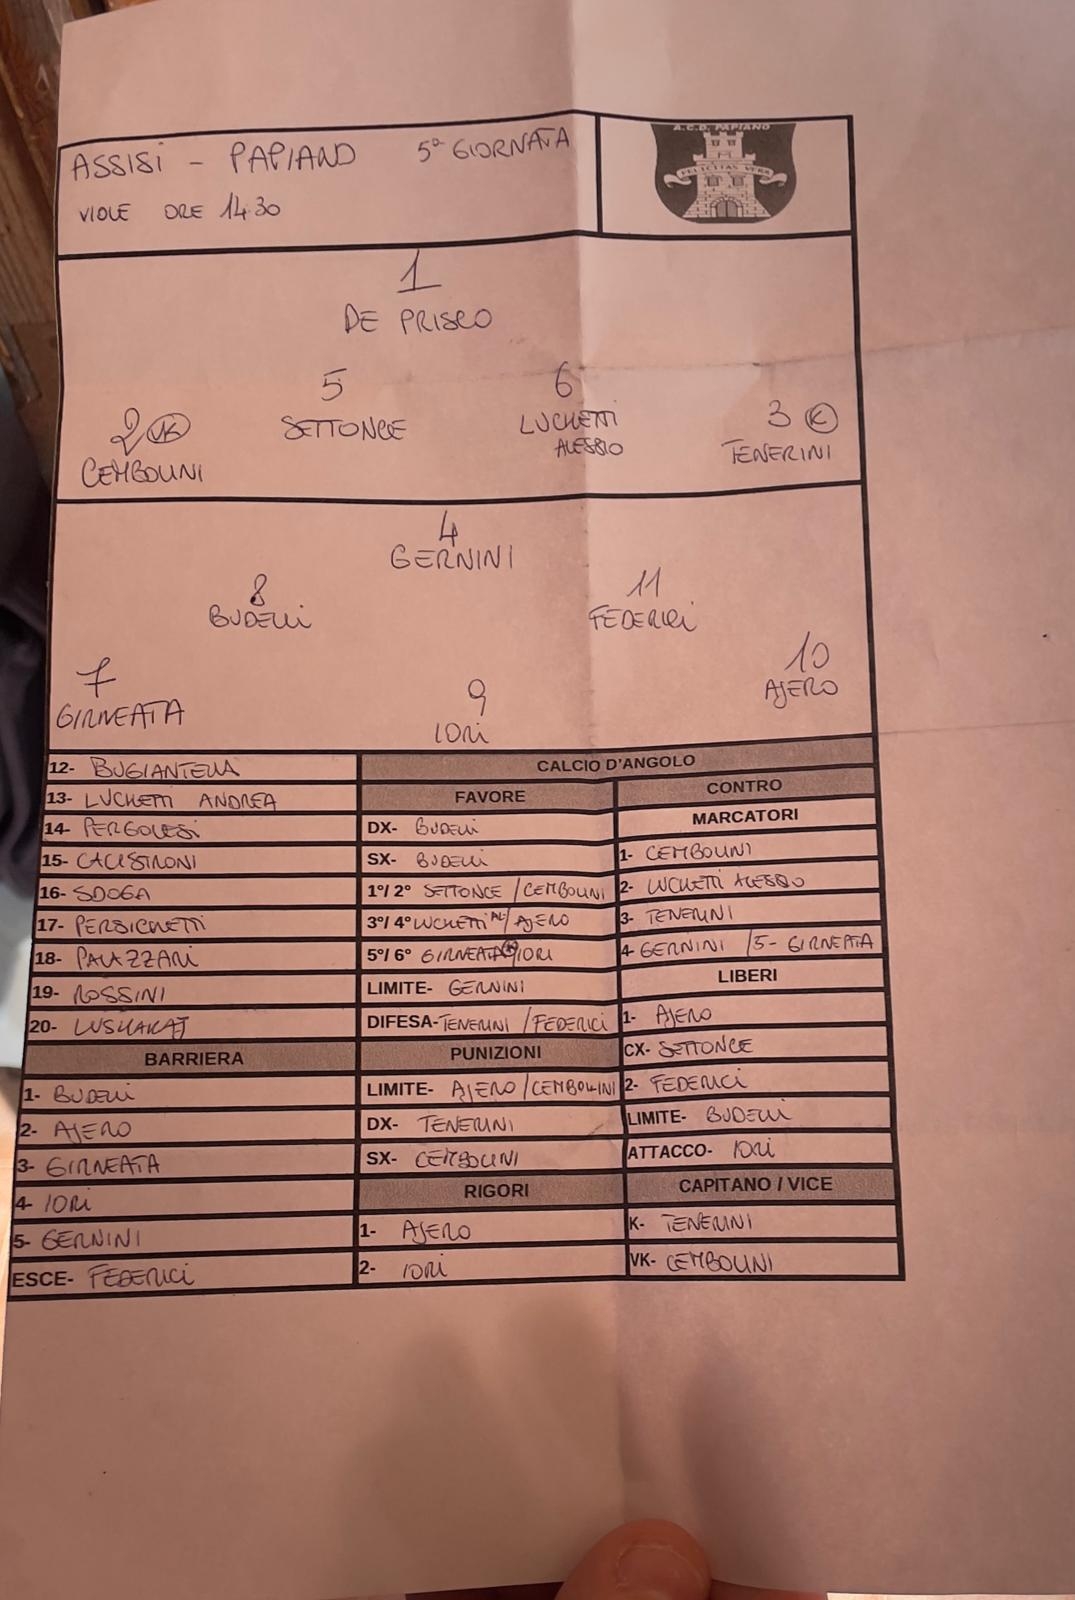 ASSISI - PAPIANO 5ª GIORNATA
VIOLE ORE 14.30
A.C.D. PAPIANO
FELICITAS VERA
1
DE PRISCO
5
SETTONCE
6
LUCHETTI
ALESSIO
2 VK
CEMBOLINI
3 K
TENERINI
4
GERNINI
8
BUDELLI
11
FEDERICI
7
GIRNEATA
9
IORI
10
AJERO
12- BUGIANTELLA
13- LUCHETTI ANDREA
14- PERGOLESI
15- CALISTRONI
16- SDOGA
17- PERSICHETTI
18- PALAZZARI
19- ROSSINI
20- LUSHAKAJ
BARRIERA
1- BUDELLI
2- AJERO
3- GIRNEATA
4- IORI
5- GERNINI
ESCE- FEDERICI
CALCIO D'ANGOLO
FAVORE
DX- BUDELLI
SX- BUDELLI
1°/ 2° SETTONCE / CEMBOLINI
3°/ 4° LUCHETTI AL / AJERO
5°/ 6° GIRNEATA / IORI
LIMITE- GERNINI
DIFESA- TENERINI / FEDERICI
PUNIZIONI
LIMITE- AJERO / CEMBOLINI
DX- TENERINI
SX- CEMBOLINI
RIGORI
1- AJERO
2- IORI
CONTRO
MARCATORI
1- CEMBOLINI
2- LUCHETTI ALESSIO
3- TENERINI
4- GERNINI / 5- GIRNEATA
LIBERI
1- AJERO
CX- SETTONCE
2- FEDERICI
LIMITE- BUDELLI
ATTACCO- IORI
CAPITANO / VICE
K- TENERINI
VK- CEMBOLINI